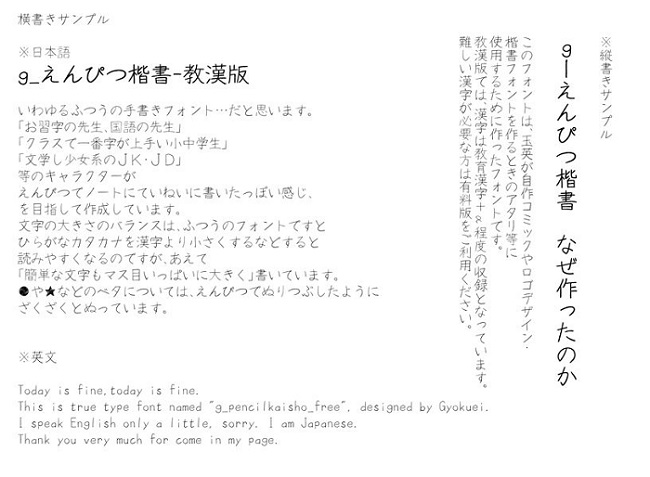 横書きサンプル
※日本語
g_えんぴつ楷書-教漢版
いわゆるふつうの手書きフォント…だと思います。
「お習字の先生、国語の先生」
「クラスで一番字が上手い小中学生」
「文学し少女系のＪＫ・ＪＤ」
等のキャラクターが
えんぴつでノートにていねいに書いたっぽい感じ、
を目指して作成しています。
文字の大きさのバランスは、ふつうのフォントですと
ひらがなカタカナを漢字より小さくするなどすると
読みやすくなるのですが、あえて
「簡単な文字もマス目いっぱいに大きく」書いています。
●や★などのベタについては、えんぴつでぬりつぶしたように
ざくざくとぬっています。
※英文
Today is fine,today is fine.
This is true type font named "g_pencilkaisho_free", designed by Gyokuei.
I speak English only a little, sorry. I am Japanese.
Thank you very much for come in my page.
※縦書きサンプル
g_えんぴつ楷書　なぜ作ったのか
このフォントは、玉英が自作コミックやロゴデザイン・
楷書フォントを作るときのアタリ等に
使用するために作ったフォントです。
教漢版では、漢字は教育漢字＋α程度の収録となっています。
難しい漢字が必要な方は有料版をご利用ください。